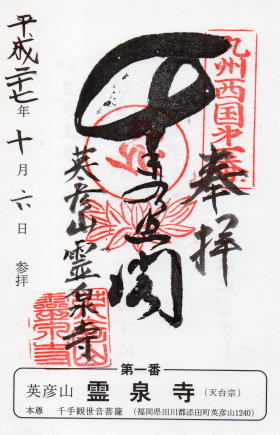 九州西国第一番
奉拝
英彦山霊泉寺
平成二十七年十月六日 参拝
第一番
英彦山 霊泉寺 (天台宗)
本尊 千手観世音菩薩 (福岡県田川郡添田町英彦山1240)